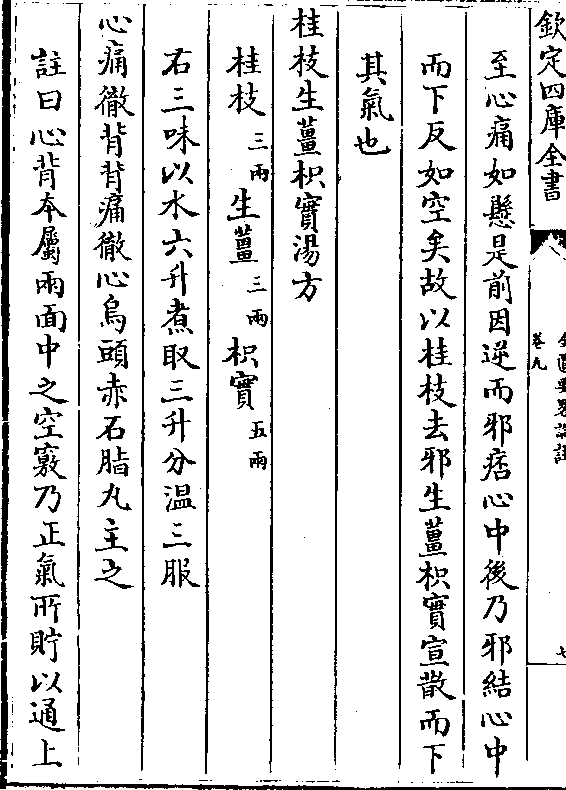 欽定四庫全書
金匱要畧論註
卷九
七
至心痛如懸是前因逆而邪痞心中後乃邪結心中
而下反如空矣故以桂枝去邪生薑枳實宣散而下
其氣也
桂枝生薑枳實湯方
桂枝三兩 生薑三兩 枳實五兩
右三味以水六升煮取三升分温三服
心痛徹背背痛徹心烏頭赤石脂丸主之
註曰心背本屬兩面中之空竅乃正氣所貯以通上